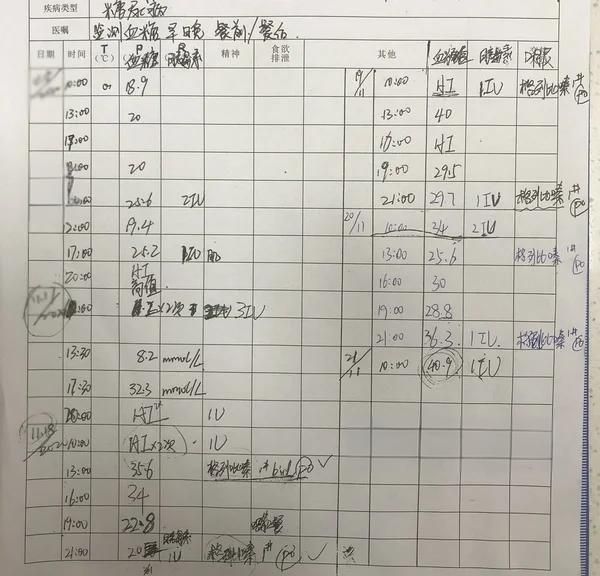 疾病类型 糖尿病
医嘱 监测血糖 早晚 餐前/餐后
日期 时间 T (℃) P 血糖 R 胰岛素 精神 食欲 排泄 其他 血糖 胰岛素 口服
10:00 18.9
13:00 20
20
25.6 2IU
2:00 19.4
17:00 25.2
20:00 HI 高值
×2次 3IU
13:30 8.2 mmol/L
17:30 32.3 mmol/L
HI 1U
11.18 10:00 HI×2次 1U
13:00 35.6 格列吡嗪 bid po
16:00 34
19:00 22.8
21:00 20 胰岛素 1U 格列吡嗪 po
19/11 10:00 HI 1IU 格列吡嗪 po
13:00 40
16:00 HI
19:00 29.5
21:00 29.7 1IU 格列吡嗪 po
20/11 10:00 34 2IU
13:00 25.6 格列吡嗪 po
16:00 30
19:00 28.8
21:00 36.3 1IU. 格列吡嗪 po
21/11 10:00 40.9 1IU